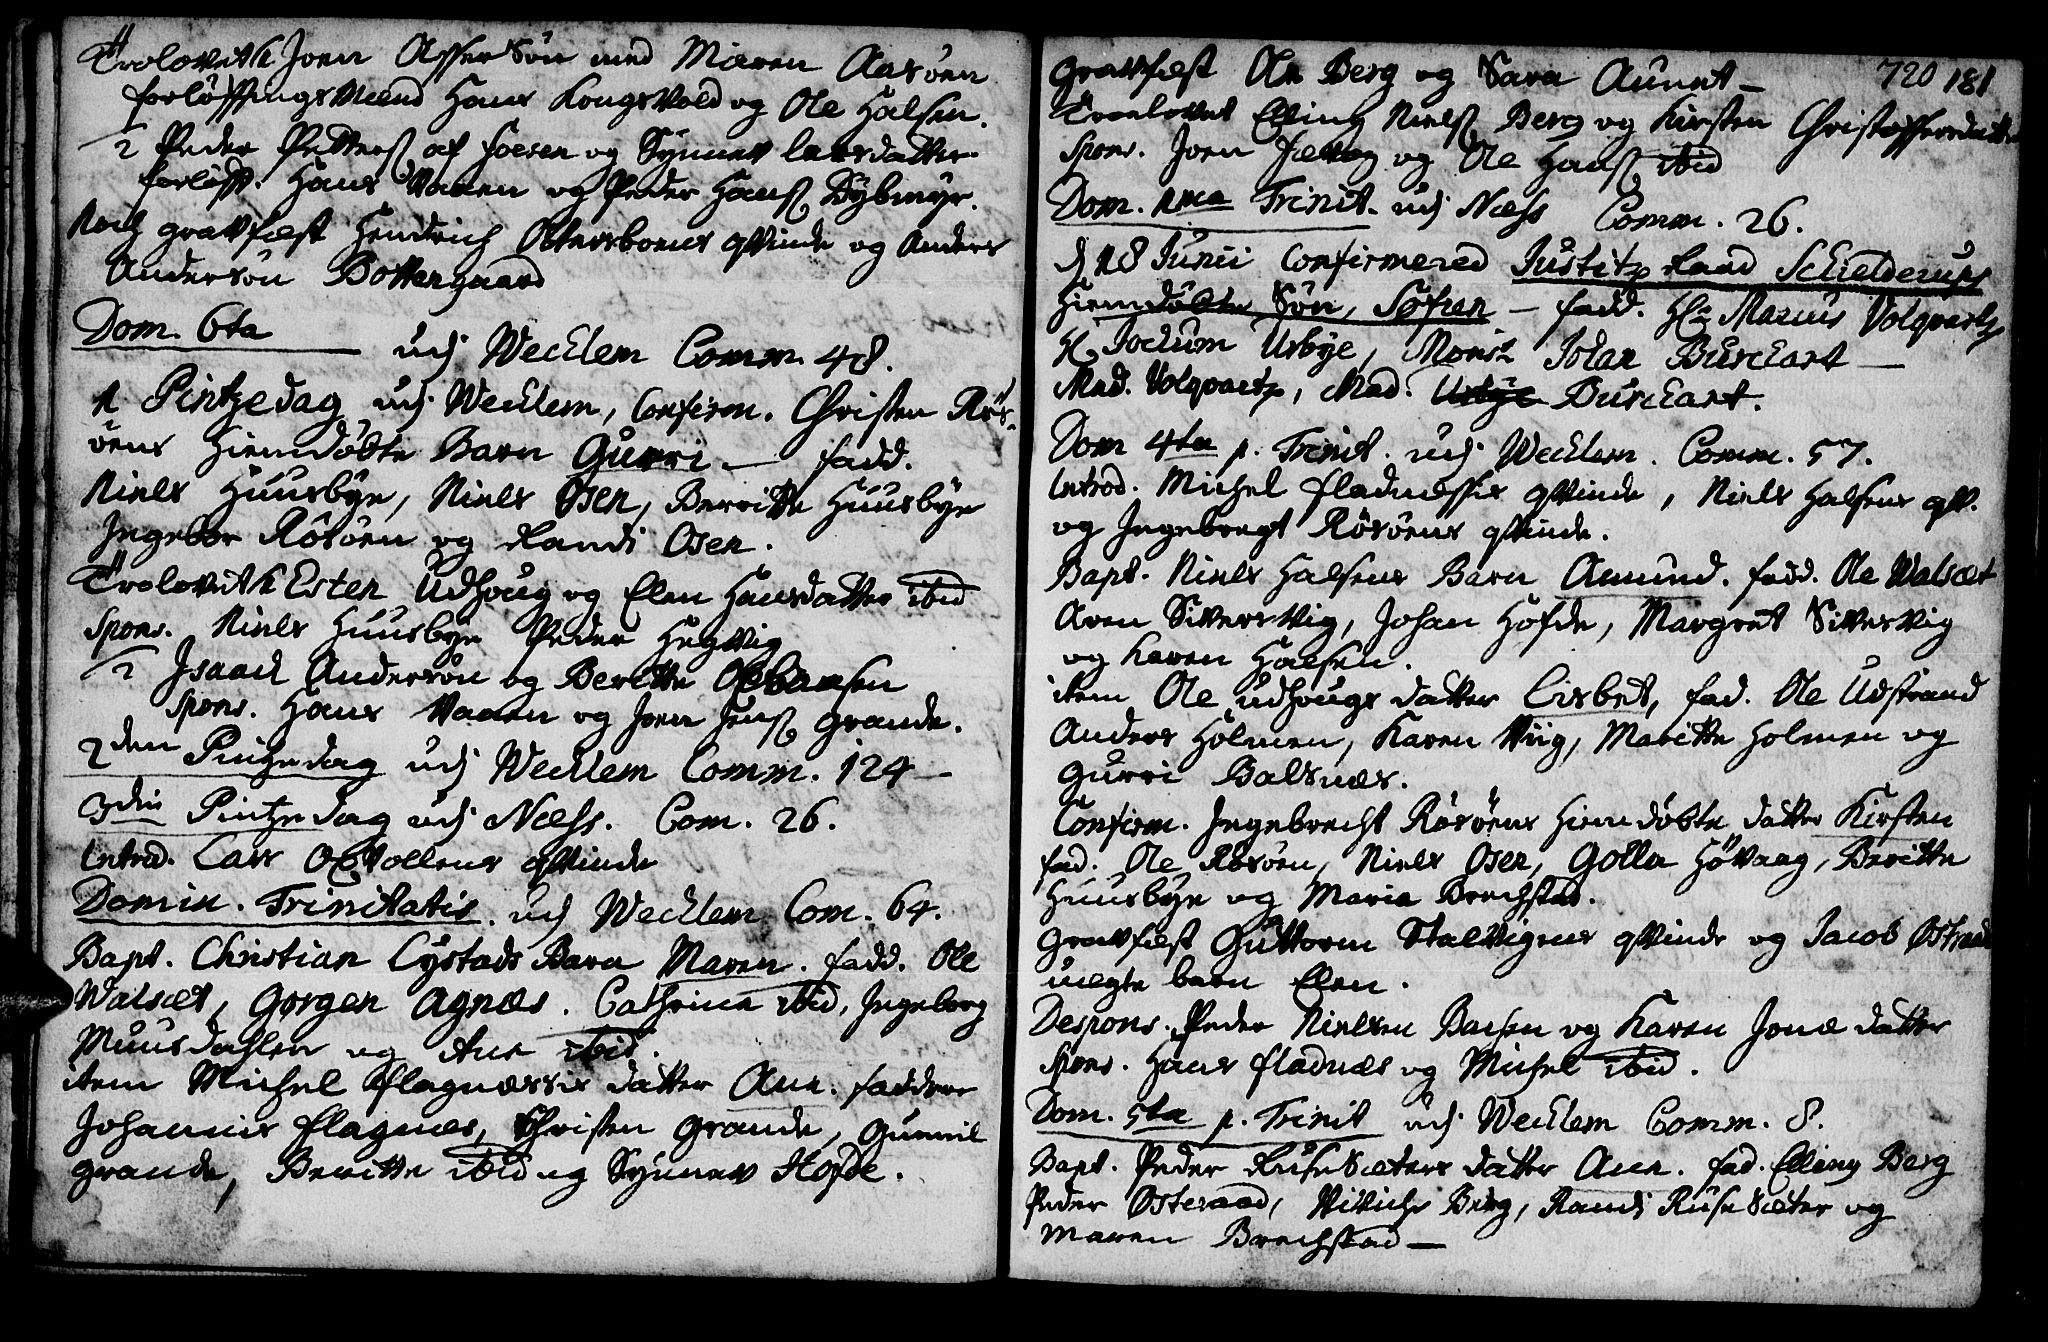 Trolovit Joen Assersön med Maren Aasöen
forlöffningsMænd Hans Kongsvold og Ole Halsen.
Peder Petters. af Foesen og Synnev larsdatter
forlöfft. Hans Vaaen og Peder Hans. Dybmyr.
Noch gravfæst Hendrich Ottersboens qvinde og Anders
Andersön Bottengaard
Dom. 6ta udj Wecklem Comm. 48.
1 Pintzedag udj Wecklem, Confirm. Christen Rös-
öens Hiemdöbte Barn Gurri — fadd.
Niels Huusbye, Niels Osen, Beritte Huusbye
Ingebor Rösöen og Randi Osen.
Trolovit Esten Udhoug og Elen Hansdatter ibid
Spons. Niels Huusbye Peder Hegvig
Isaach Andersön og Beritte
Spons. Hans Vaaen og Joen Jens. Grande.
2den Pintzedag udj Wecklem Comm. 124 —
3die Pintzedag udj Næss. Com. 26.
Introd. Lars Oxvollens qvinde
Domin. Trinitatis udj Wecklem Com. 64.
Bapt. Christian Lystads Barn Maren. fadd. Ole
Walsæt, Görgen Agnæs. Cathrina ibid, Ingeborg
Muusdahlen og Ane ibid.
item Michel Flagnæssis datter Ane. faddere
Johannis Flagnæs, Christen Grande, Gunnil
Grande, Beritte ibid og Synnev Hofde.
720 181
Gravfæst Ole Berg og Sara Aunet —
Troelovet Elling Niels. Berg og Kirsten Christoffersdatter
Spons. Joen og Ole Hans. ibid
Dom. 1ma Trinit. udj Næss Comm. 26.
d 18 Junii Confirmered Justitz Raad Schielderups
Hiemdöbte Sön, Søfren — fadd. Hr Marcus Volqvartz
H. Jochum Urbye, Monsr Johan Burchart —
Mad. Volqvartz, Mad. Urbye Burchart.
Dom 4ta p. Trinit. udj Wecklem. Comm. 57.
Introd. Michel Fladnæssis qvinde, Niels Halsens qv.
og Ingebregt Rösöens qvinde.
Bapt. Niels Halsens Barn Amund. fadd. Ole Walsæt
Aren Siversvig, Johan Hofde, Margret Siversvig
og Karen Halsen.
item Ole udhougs datter Lisbet, fad. Ole Udstrand
Anders Holmen, Karen Viig, Maritte Holmen og
Gurri Balsnæs.
Confirm. Ingebrecht Rösöens Hiemdöbte datter Kirsten
fad. Ole Rösöen, Niels Osen, Golla Hövaag, Beritte
Huusbye og Maria Brechstad.
Gravfæst Guttorm Stalvigens qvinde og Jacob
uægte barn Elen.
Despons. Peder Nielsen Bachen og Karen Jonæ datter
Spons. Hans Fladnæs og Michel ibid.
Dom. 5ta p. Trinit udj Wecklem Comm. 8.
Bapt. Peder Rusesæters datter Ane. fad. Elling Berg
Peder Østeraad, Berg, Randi Rusesæter og
Maren Brechstad —